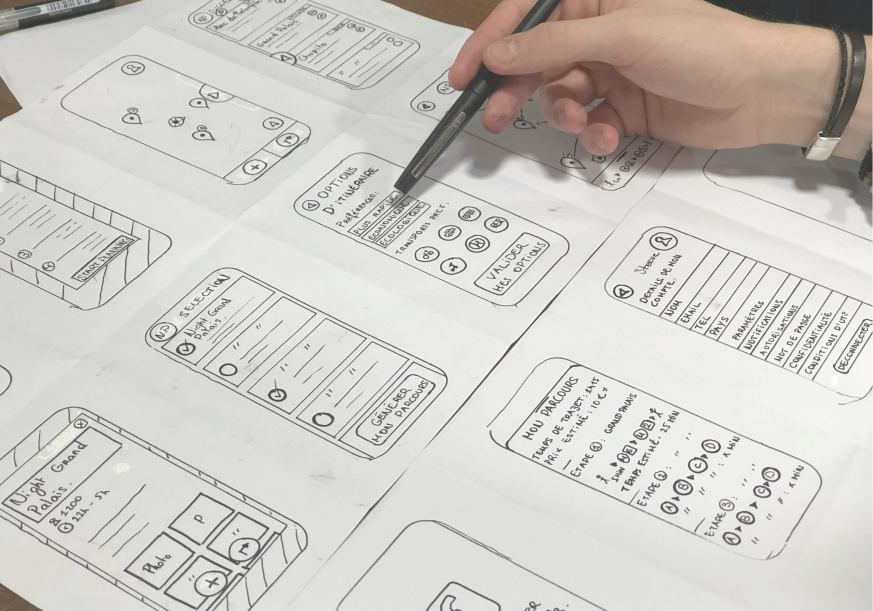 Grand Palais
OPTIONS
D'ITINÉRAIRE
Préférences:
PLUS RAPIDE
ÉCONOMIQUE
ÉCOLOGIQUE
TRANSPORT PREF:
VALIDER
MES OPTIONS
START PLANNING
SELECTION
Night Grand
Palais.
GÉNÉRER
MON PARCOURS
DETAILS DE MON
COMPTE.
NOM
EMAIL
TEL
PAYS
PARAMÈTRES
NOTIFICATIONS
AUTORISATIONS
MOT DE PASSE
CONFIDENTIALITÉ
CONDITIONS D'UT?
DECONNECTER
MON PARCOURS
TEMPS DE TRAJET:
PRIX ESTIMÉ: 10 €
ETAPE 1: GRAND PALAIS
5MIN
TEMPS ESTIMÉ: 25 MIN
ETAPE 2: " "
A B C D
" " " : X MIN
ETAPE 3: " "
A B C D
" " : X MIN
Night Grand
Palais.
1200
22h - 5h
Photo
P